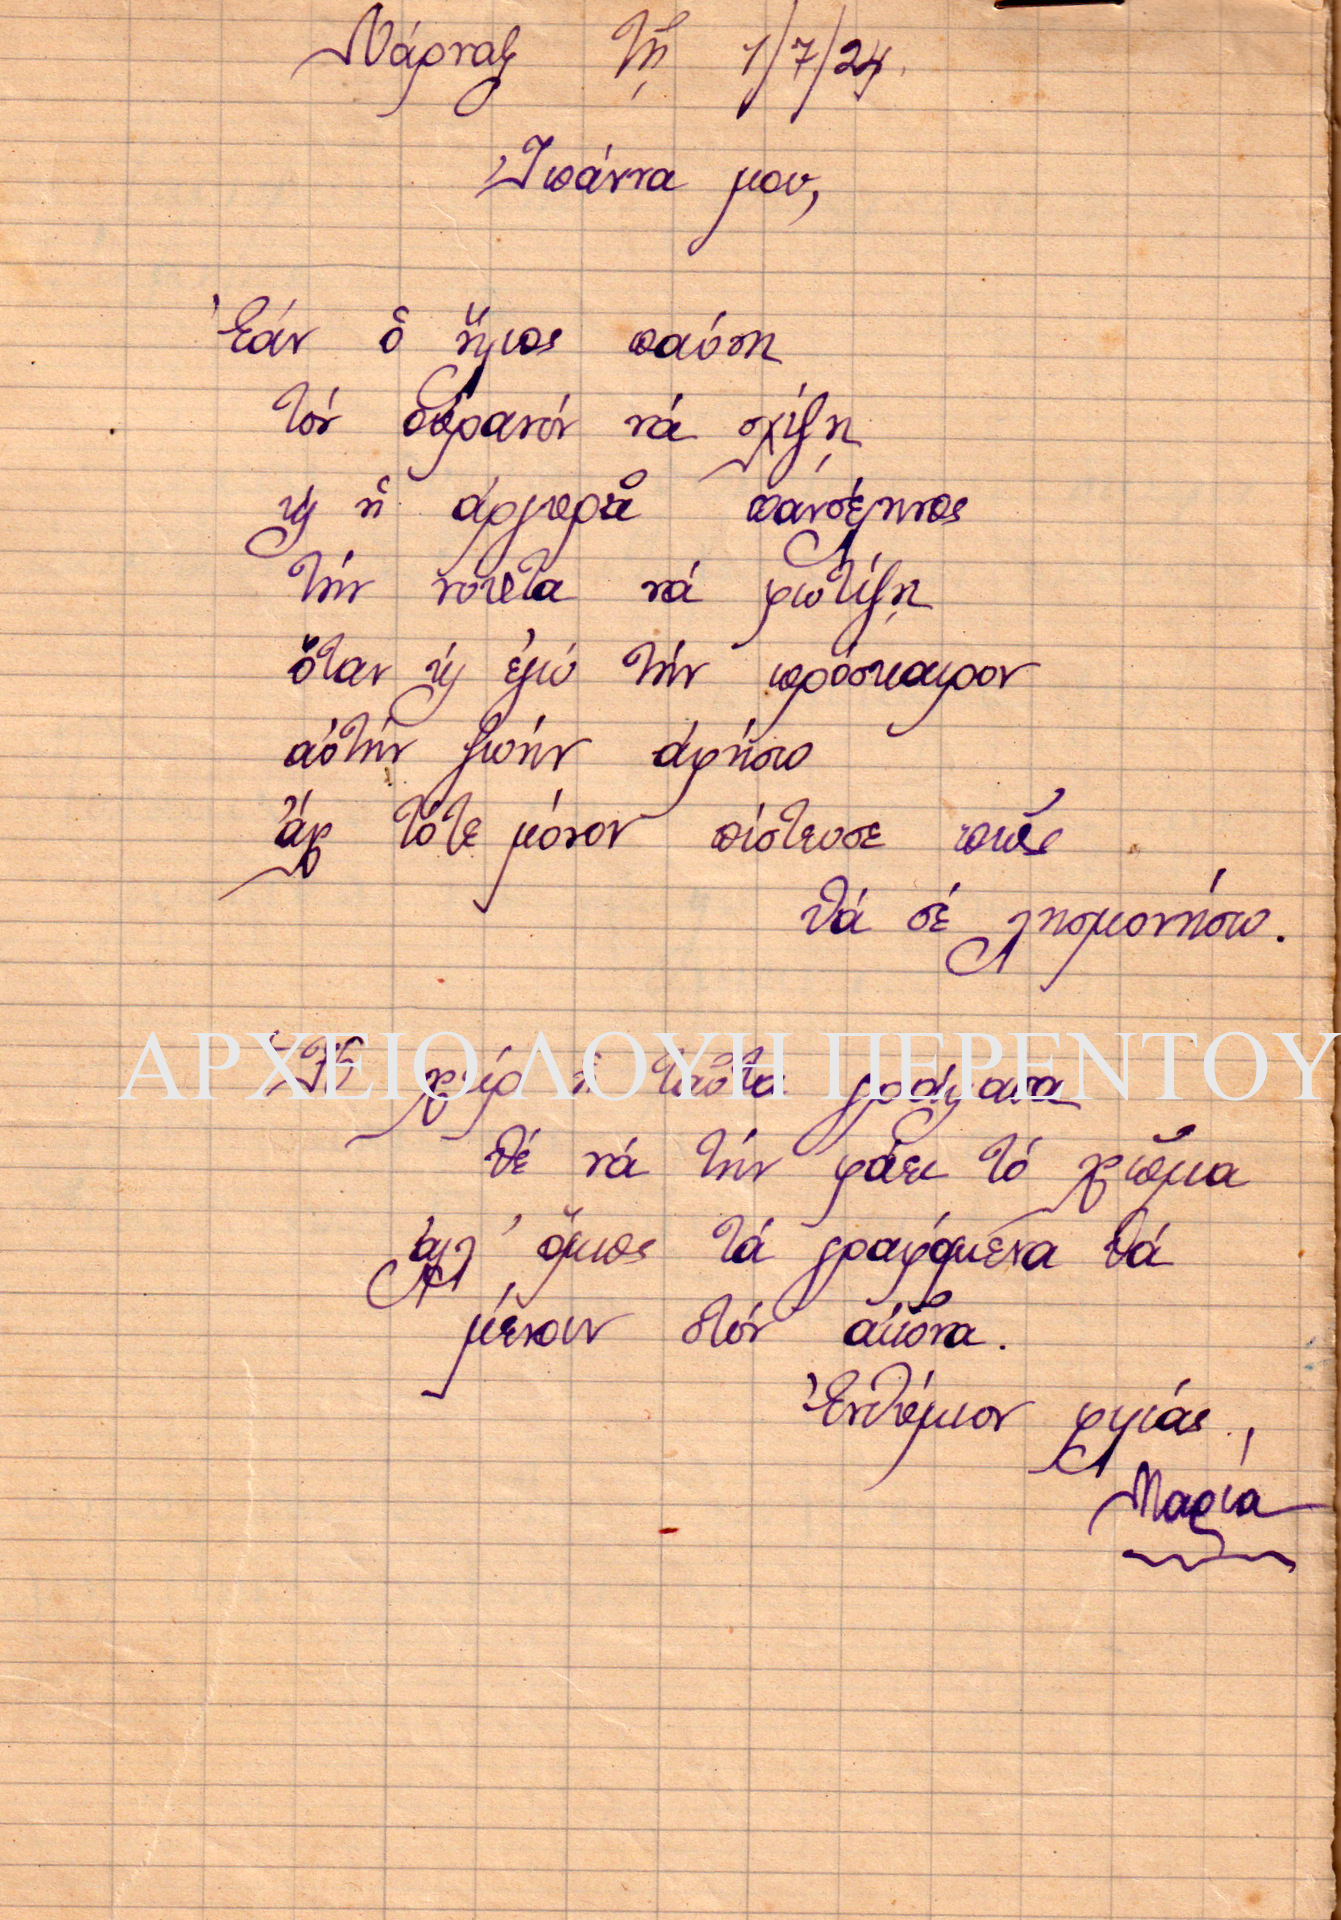 Λάρναξ τῇ 1/7/24.
Ἰωάννα μου,
Ἐάν ὁ ἥλιος παύσῃ
τόν οὐρανόν νά σχίζῃ
κ' ἡ ἀργυρᾶ πανσέληνος
τήν νύκτα νά φωτίζῃ
ὅταν κ' ἐγώ τήν πρόσκαιρον
αὐτήν ζωήν ἀφήσω
ἄχ τότε μόνον πίστευσε πῶς
θά σέ λησμονήσω.
ΑΡΧΕΙΟ ΛΟΥΗ ΠΕΡΕΝΤΟΥ
Ἡ χείρ ἡ ταῦτα γράψασα
θέ νά τήν φάει τό χῶμα
ἀλλ' ὅμως τά γραφόμενα θά
μένουν στόν αἰῶνα.
Ἐνθύμιον φιλίας,
Μαρία